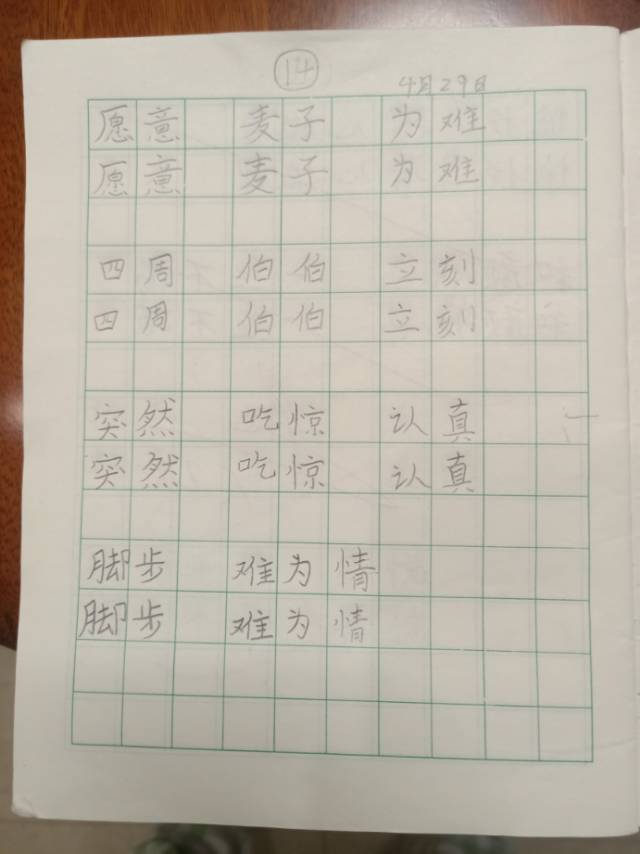 14
4月29日
愿意 麦子 为难
愿意 麦子 为难
四周 伯伯 立刻
四周 伯伯 立刻
突然 吃惊 认真
突然 吃惊 认真
脚步 难为情
脚步 难为情